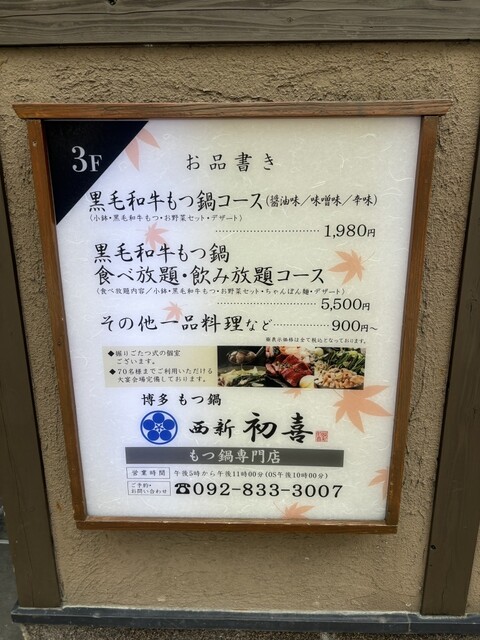 3F
お品書き
黒毛和牛もつ鍋コース(醤油味/味噌味/辛味)
(小鉢・黒毛和牛もつ・お野菜セット・デザート)
1,980円
黒毛和牛もつ鍋
食べ放題・飲み放題コース
(食べ放題内容/小鉢・黒毛和牛もつ・お野菜セット・ちゃんぽん麺・デザート)
5,500円
その他一品料理など 900円~
※表示価格は全て税込となっております。
◆堀りごたつ式の個室
ございます。
◆70名様までご利用いただける
大宴会場完備しております。
博多 もつ鍋
西新 初喜
もつ鍋専門店
営業時間 午後5時から午後11時00分(OS午後10時00分)
ご予約・
お問い合わせ ☎092-833-3007